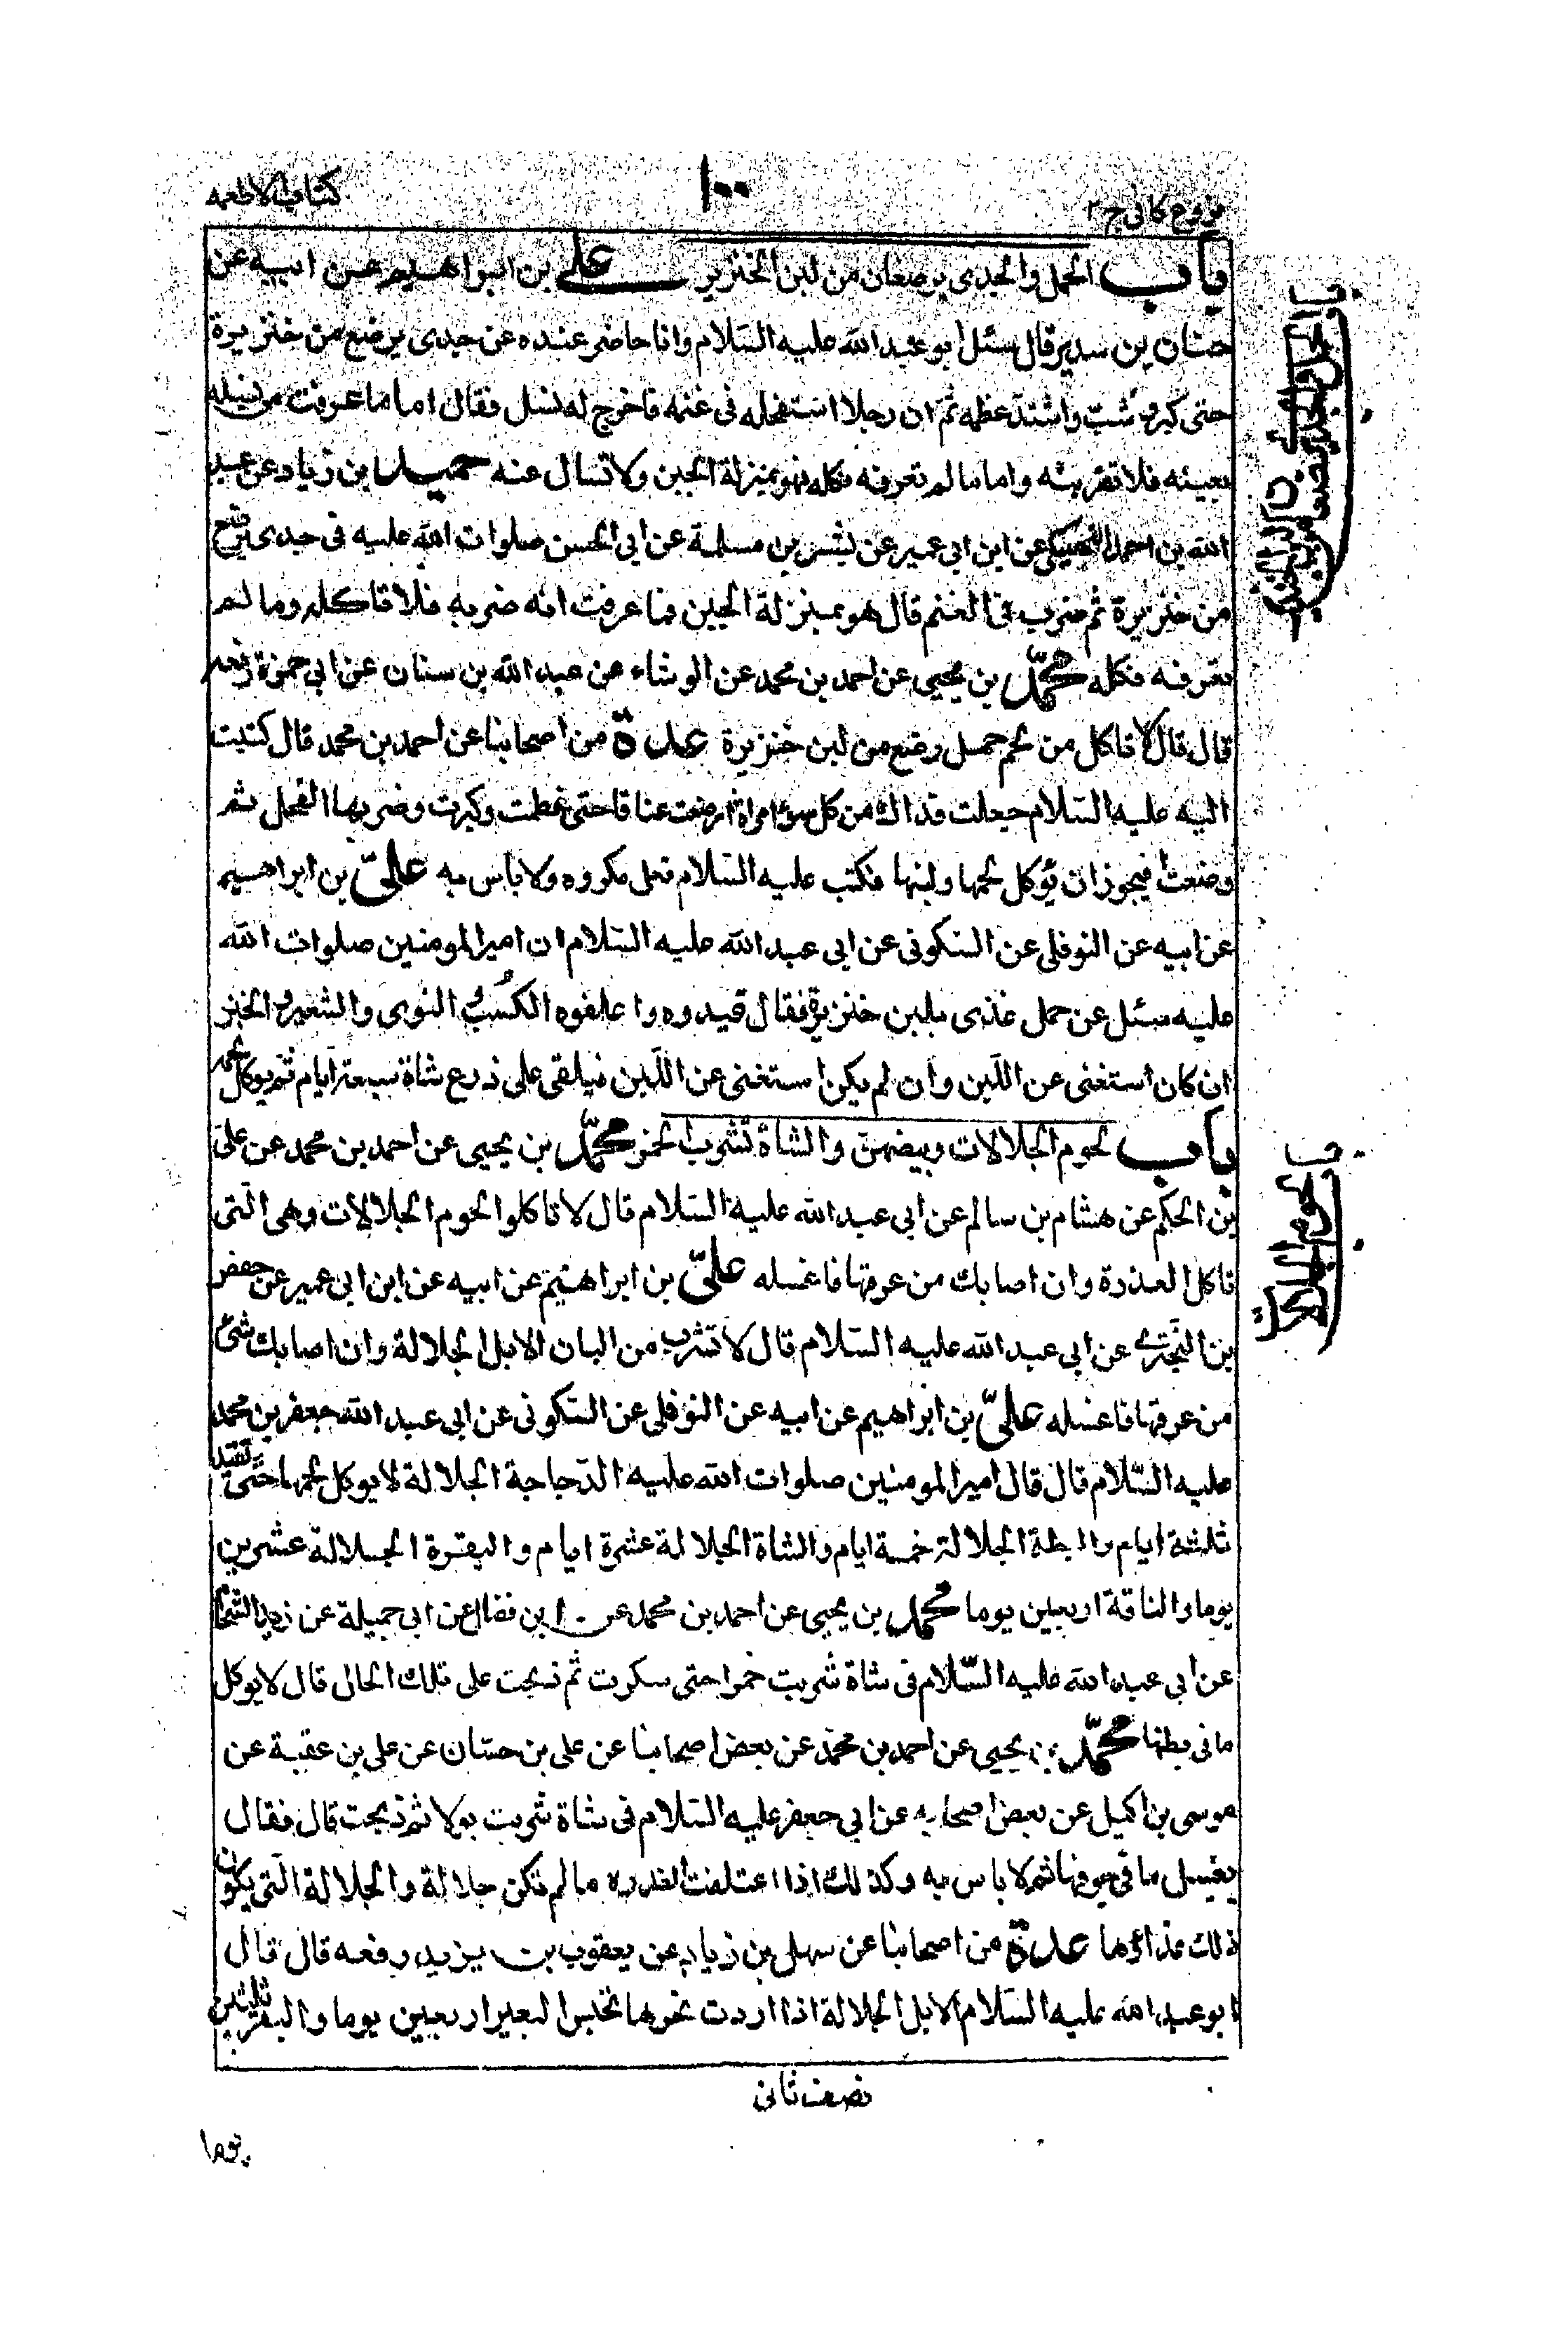 فروع كافى ج٢
١٠٠
كتاب الاطعمه
باب الحمل والجدى يرضعان من لبن الخنزير على بن ابراهيم عن ابيه عن
حنان بن سدير قال سئل ابو عبد الله عليه السلام وانا حاضر عنده عن جدى يرضع من خنزيرة
حتى كبر وشب واشتد عظمه ثم ان رجلا استفحله فى غنمه فاخرج له نسل فقال اما ما عرفت من نسله
بعينه فلا تقربنه واما ما لم تعرفه فكله فهو بمنزلة الجبن ولا تسال عنه حميد بن زياد عن عبد
الله بن احمد النهيكى عن ابن ابى عمير عن بشر بن مسلمة عن ابى الحسن صلوات الله عليه فى جدى يرضع
من خنزيرة ثم ضرب فى الغنم قال هو بمنزلة الجبن فما عرفت انه ضربه فلا تاكله وما لم
تعرفه فكله محمد بن يحيى عن احمد بن محمد عن الوشاء عن عبد الله بن سنان عن ابى حمزة رفعه
قال قال لا تاكل من لحم حمل رضع من لبن خنزيرة عدة من اصحابنا عن احمد بن محمد قال كتبت
اليه عليه السلام جعلت فداك من كل سوء امراة ارضعت عناقا حتى فطمت وكبرت وضربها الفحل ثم
وضعت افيجوز ان يؤكل لحمها ولبنها فكتب عليه السلام فعل مكروه ولا باس به على بن ابراهيم
عن ابيه عن النوفلى عن السكونى عن ابى عبد الله عليه السلام ان امير المومنين صلوات الله
عليه سئل عن حمل غذى بلبن خنزيرة فقال قيدوه واعلفوه الكُسب والنوى والشعير والخبز
ان كان استغنى عن اللبن وان لم يكن استغنى عن اللبن فيلقى على ضرع شاة سبعة ايام ثم يوكل لحمه
باب لحوم الجلالات وبيضهن والشاة تشرب الخمر محمد بن يحيى عن احمد بن محمد عن على
بن الحكم عن هشام بن سالم عن ابى عبد الله عليه السلام قال لا تاكلوا لحوم الجلالات وهى التى
تاكل العذرة وان اصابك من عرقها فاغسله على بن ابراهيم عن ابيه عن ابن ابى عمير عن حفص
بن البخترى عن ابى عبد الله عليه السلام قال لا تشرب من البان الابل الجلالة وان اصابك شئ
من عرقها فاغسله على بن ابراهيم عن ابيه عن النوفلى عن السكونى عن ابى عبد الله جعفر بن محمد
عليه السلام قال قال امير المومنين صلوات الله عليه الدجاجة الجلالة لا يوكل لحمها حتى تقيد
ثلثة ايام والبطة الجلالة خمسة ايام والشاة الجلالة عشرة ايام والبقرة الجلالة عشرين
يوما والناقة اربعين يوما محمد بن يحيى عن احمد بن محمد عن ابن فضال عن ابى جميلة عن زيد الشحام
عن ابى عبد الله عليه السلام فى شاة شربت خمرا حتى سكرت ثم ذبحت على تلك الحال قال لا يوكل
ما فى بطنها محمد بن يحيى عن احمد بن محمد عن بعض اصحابنا عن على بن حسان عن على بن عقبة عن
موسى بن اكيل عن بعض اصحابه عن ابى جعفر عليه السلام فى شاة شربت بولا ثم ذبحت قال فقال
يغسل ما فى جوفها ثم لا باس به وكذلك اذا اعتلفت العذرة ما لم تكن جلالة والجلالة التى يكون
ذلك غذاؤها عدة من اصحابنا عن سهل بن زياد عن يعقوب بن يزيد رفعه قال قال
ابو عبد الله عليه السلام الابل الجلالة اذا اردت نحرها تحبس البعير اربعين يوما والبقر ثلثين
نصف ثانى
يوما
باب الحمل والجدى يرضعان من لبن الخنزير
باب لحوم الجلالات